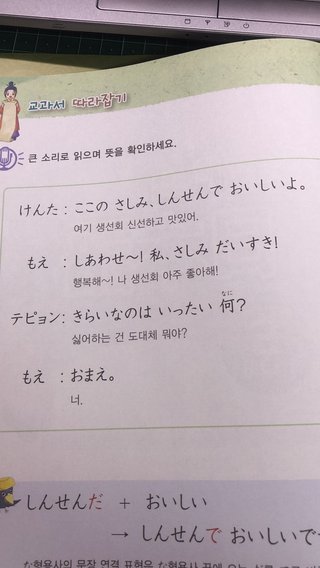 교과서 따라잡기
큰 소리로 읽으며 뜻을 확인하세요.
けんた : ここの さしみ、しんせんで おいしいよ。
여기 생선회 신선하고 맛있어.
もえ : しあわせ〜! 私、さしみ だいすき!
행복해~! 나 생선회 아주 좋아해!
テピョン: きらいなのは いったい 何?
なに
싫어하는 건 도대체 뭐야?
もえ : おまえ。
너.
しんせんだ + おいしい
→ しんせんで おいしいで
な형용사의 문장 연결 표현은 な형용사